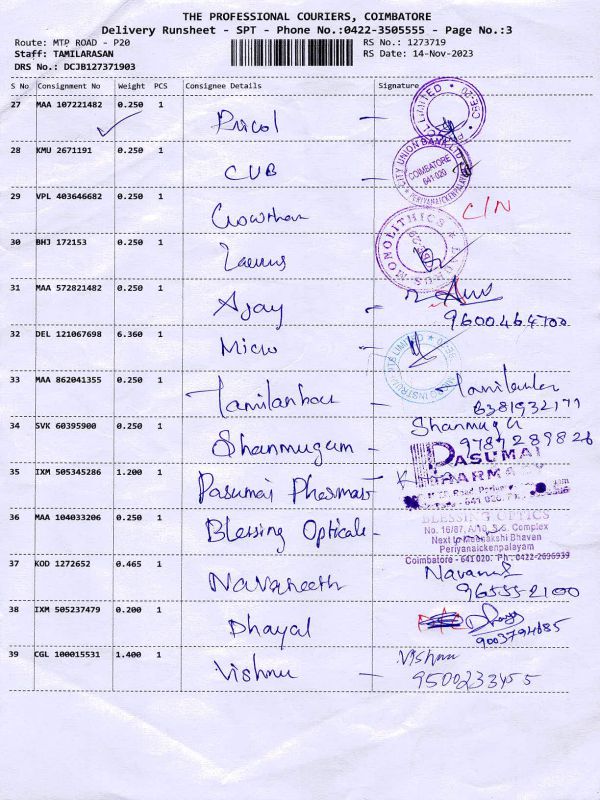 THE PROFESSIONAL COURIERS, COIMBATORE
Delivery Runsheet - SPT - Phone No.:0422-3505555 - Page No.:3
Route: MTP ROAD - P20
Staff: TAMILARASAN
DRS No.: DCJB127371903
RS No.: 1273719
RS Date: 14-Nov-2023
S No Consignment No Weight PCS Consignee Details Signature
27 MAA 107221482 0.250 1 Pricol -
28 KMU 2671191 0.250 1 CUB -
CITY UNION BANK LTD
COIMBATORE
641-020
PERIYANAICKENPALAYAM
29 VPL 403646682 0.250 1 Gowtham C/N
30 BHJ 172153 0.250 1 -
MONOLITHICS
31 MAA 572821482 0.250 1 Ajay -
9600464700
32 DEL 121067698 6.360 1 Micro -
33 MAA 862041355 0.250 1 -
8381932171
34 SVK 60395900 0.250 1 Shanmugam - Shanmuga
9789289826
35 IXM 505345286 1.200 1 Pasumai Pharmacy -
PASUMAI
PHARMACY
36 MAA 104033206 0.250 1 Blessing Opticals -
BLESSING OPTICS
No. 16/87, A/10, S.G. Complex
Next to Meenakshi Bhavan
Periyanaickenpalayam
Coimbatore - 641 020. Ph : 0422-2696939
37 KOD 1272652 0.465 1 Navaneeth
96555-2100
38 IXM 505237479 0.200 1 Dhayal
9003794685
39 CGL 100015531 1.400 1 Vishnu Vishnu
9500233455